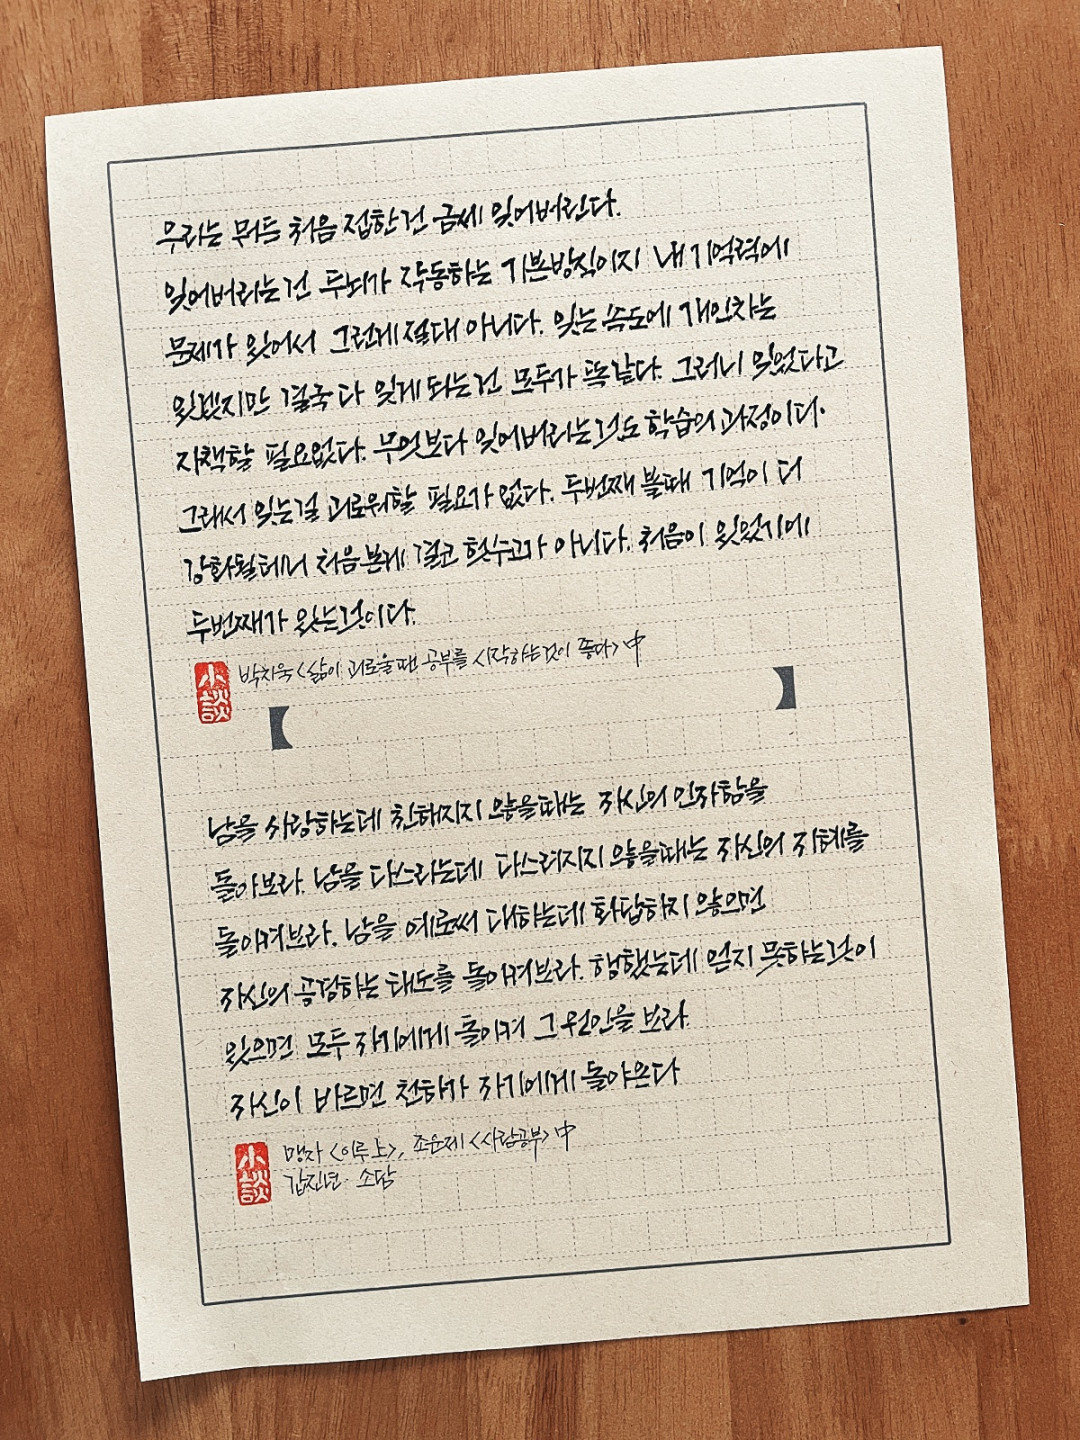 우리는 뭐든 처음 접한건 금세 잊어버린다.
잊어버리는건 두뇌가 작동하는 기본방식이지 내 기억력에
문제가 있어서 그런게 절대 아니다. 잊는 속도에 개인차는
있겠지만 결국 다 잊게 되는건 모두가 똑같다. 그러니 잊었다고
자책할 필요없다. 무엇보다 잊어버리는것도 학습의 과정이다.
그래서 잊는걸 괴로워할 필요가 없다. 두번째 볼때 기억이 더
강화될테니 처음본게 결코 헛수고가 아니다. 처음이 있었기에
두번째가 있는것이다.
小談
박치욱 <삶이 괴로울땐 공부를 시작하는것이 좋다> 中
남을 사랑하는데 친해지지 않을때는 자신의 인자함을
돌아보라. 남을 다스리는데 다스려지지 않을때는 자신의 지혜를
돌이켜보라. 남을 예로써 대하는데 화답하지 않으면
자신의 공경하는 태도를 돌이켜보라. 행했는데 얻지 못하는것이
있으면 모두 자기에게 돌이켜 그 원인을 보라.
자신이 바르면 천하가 자기에게 돌아온다
小談
맹자 <이루 上>, 조윤제 <사람공부> 中
갑진년. 소담